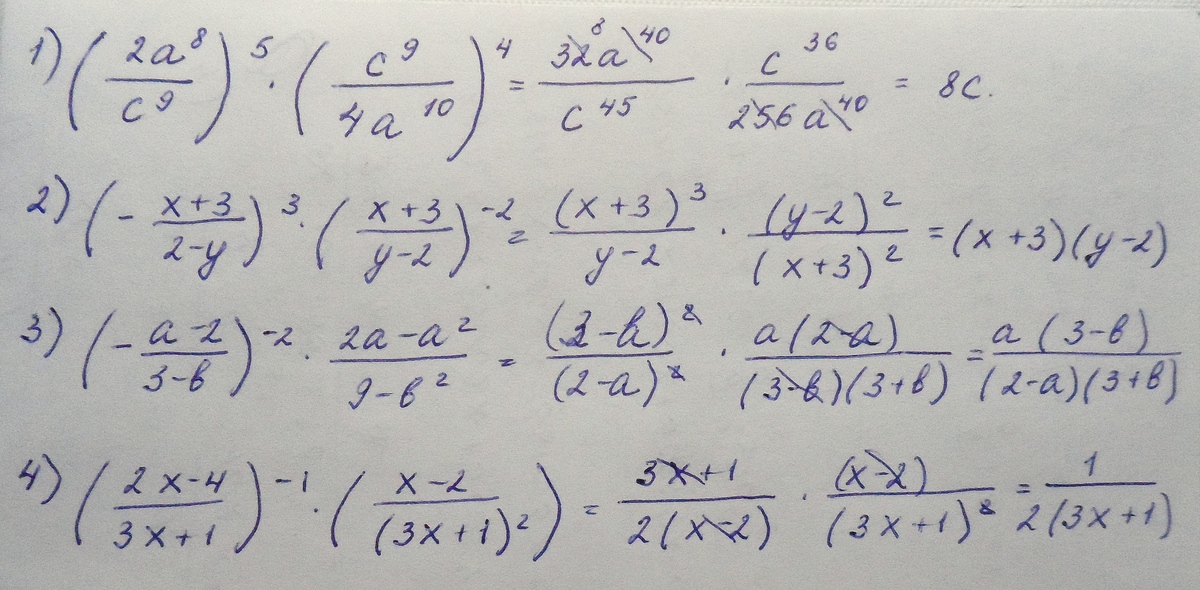 1) (2a⁸/c⁹)⁵ · (c⁹/4a¹⁰)⁴ = 32a⁴⁰/c⁴⁵ · c³⁶/256a⁴⁰ = 8c.
2) (- x+3/2-y)³ · (x+3/y-2)⁻² = (x+3)³/y-2 · (y-2)²/(x+3)² = (x+3)(y-2)
3) (- a-2/3-b)⁻² · 2a-a²/9-b² = (3-b)²/(2-a)² · a(2-a)/(3-b)(3+b) = a(3-b)/(2-a)(3+b)
4) (2x-4/3x+1)⁻¹ · (x-2/(3x+1)²) = 3x+1/2(x-2) · (x-2)/(3x+1)² = 1/2(3x+1)